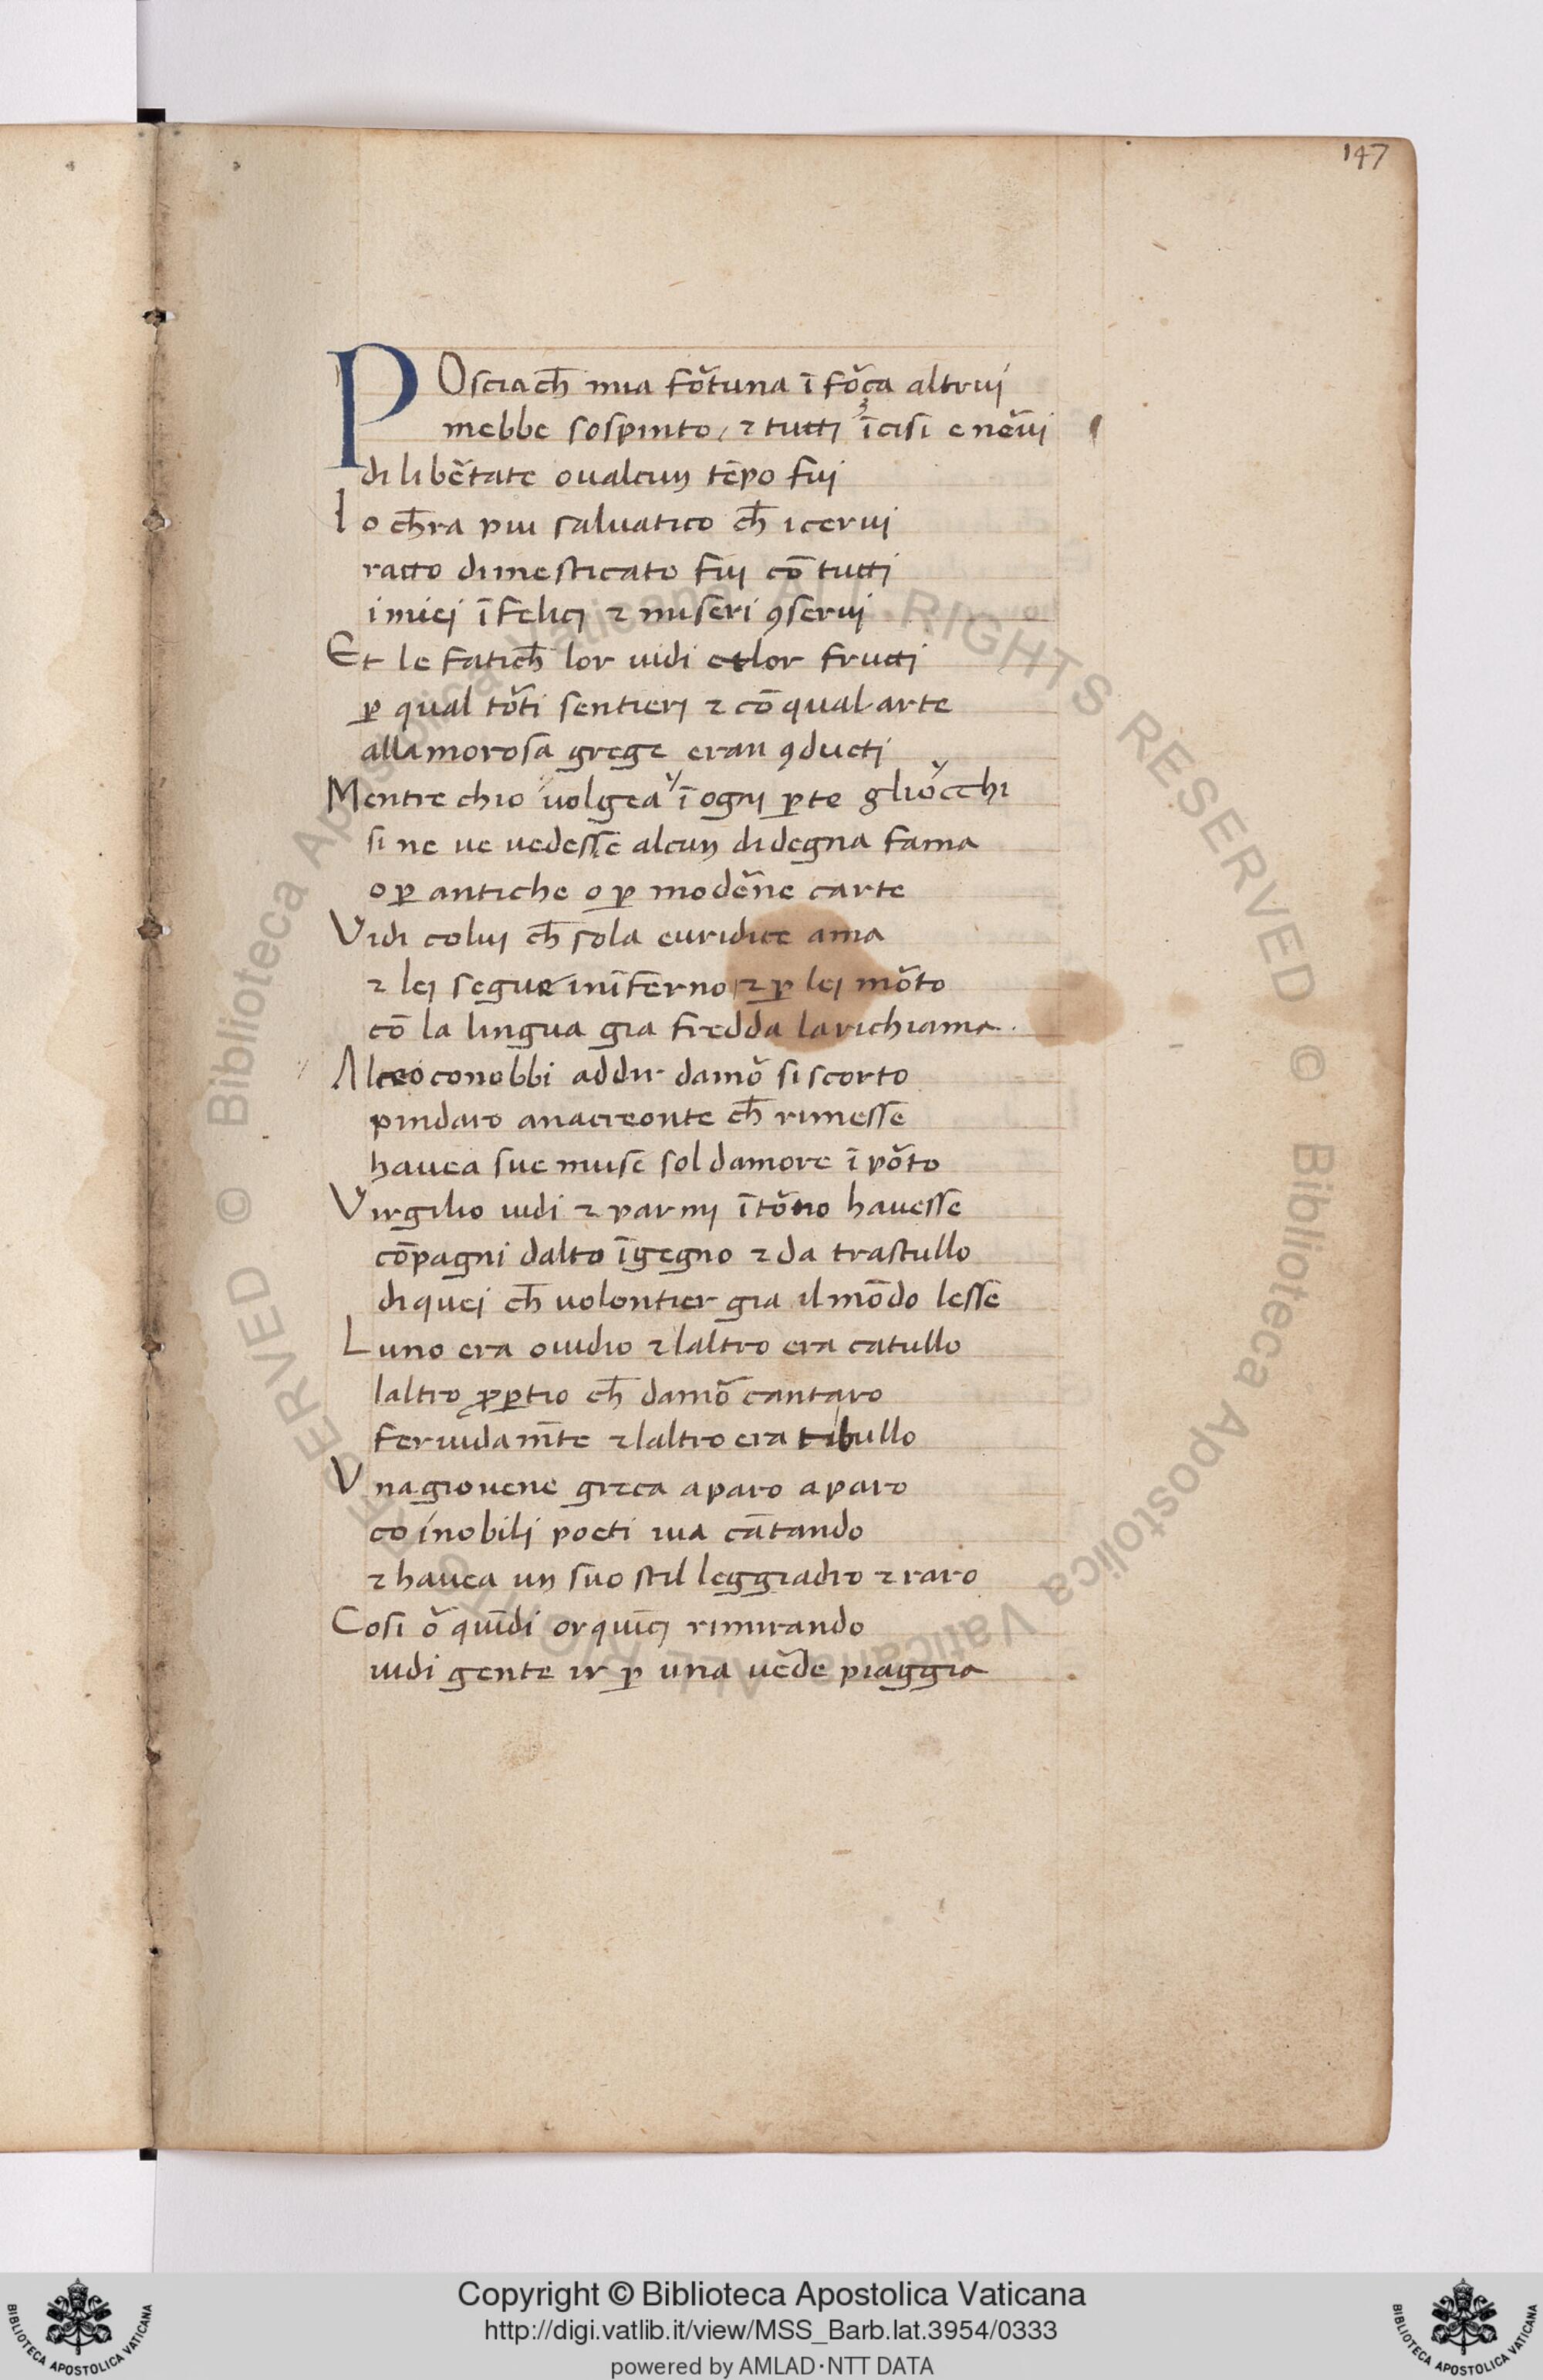 147
POscia ch̄ mia fo᷑tuna ī fo᷑ça altrui
mebbe sospinto / ⁊ tutti īcisi e ne᷑ui
di libe᷑tate oualcun tēpo fui
Io ch̄ra piu saluatico ch̄ icerui
ratto dimesticato fui cō tutti
i miei īfelici ⁊ miseri ꝯserui
Et le fatich̄ lor uidi etlor frutti
ꝑ qual to᷑ti sentieri ⁊ cō qual arte
allamorosa grege eran ꝯducti
Mentre chio uolgea ī ogni ꝑte gliocchi
si ne ue vedesse alcun di degna fama
o ꝑ antiche o ꝑ mode᷑ne carte
Vidi colui ch̄ sola euridice ama
⁊ lei segue inīferno ⁊ ꝑ lei mo᷑to
cō la lingua gia fredda la richiama.
Alceo conobbi addir damo᷑ si scorto
pindaro anacreonte ch̄ rimesse
hauea sue muse sol damore ī po᷑to
Virgilio uidi ⁊ parmi īto᷑no hauesse
cōpagni dalto īgegno ⁊ da trastullo
di quei ch̄ uolontier gia il mōdo lesse
Luno era ouidio ⁊ laltro era catullo
laltro ꝓꝑtio ch̄ damo᷑ cantaro
feruidam̄te ⁊ laltro era tibullo
Vna giouene greca a paro a paro
co inobili poeti iua cātando
⁊ hauea un suo stil leggiadro ⁊ raro
Cosi o᷑ quīdi or quīci rimirando
uidi gente ir ꝑ una ue᷑de piaggia
Copyright © Biblioteca Apostolica Vaticana
http://digi.vatlib.it/view/MSS_Barb.lat.3954/0333
powered by AMLAD·NTT DATA
BIBLIOTECA APOSTOLICA VATICANA
BIBLIOTECA APOSTOLICA VATICANA